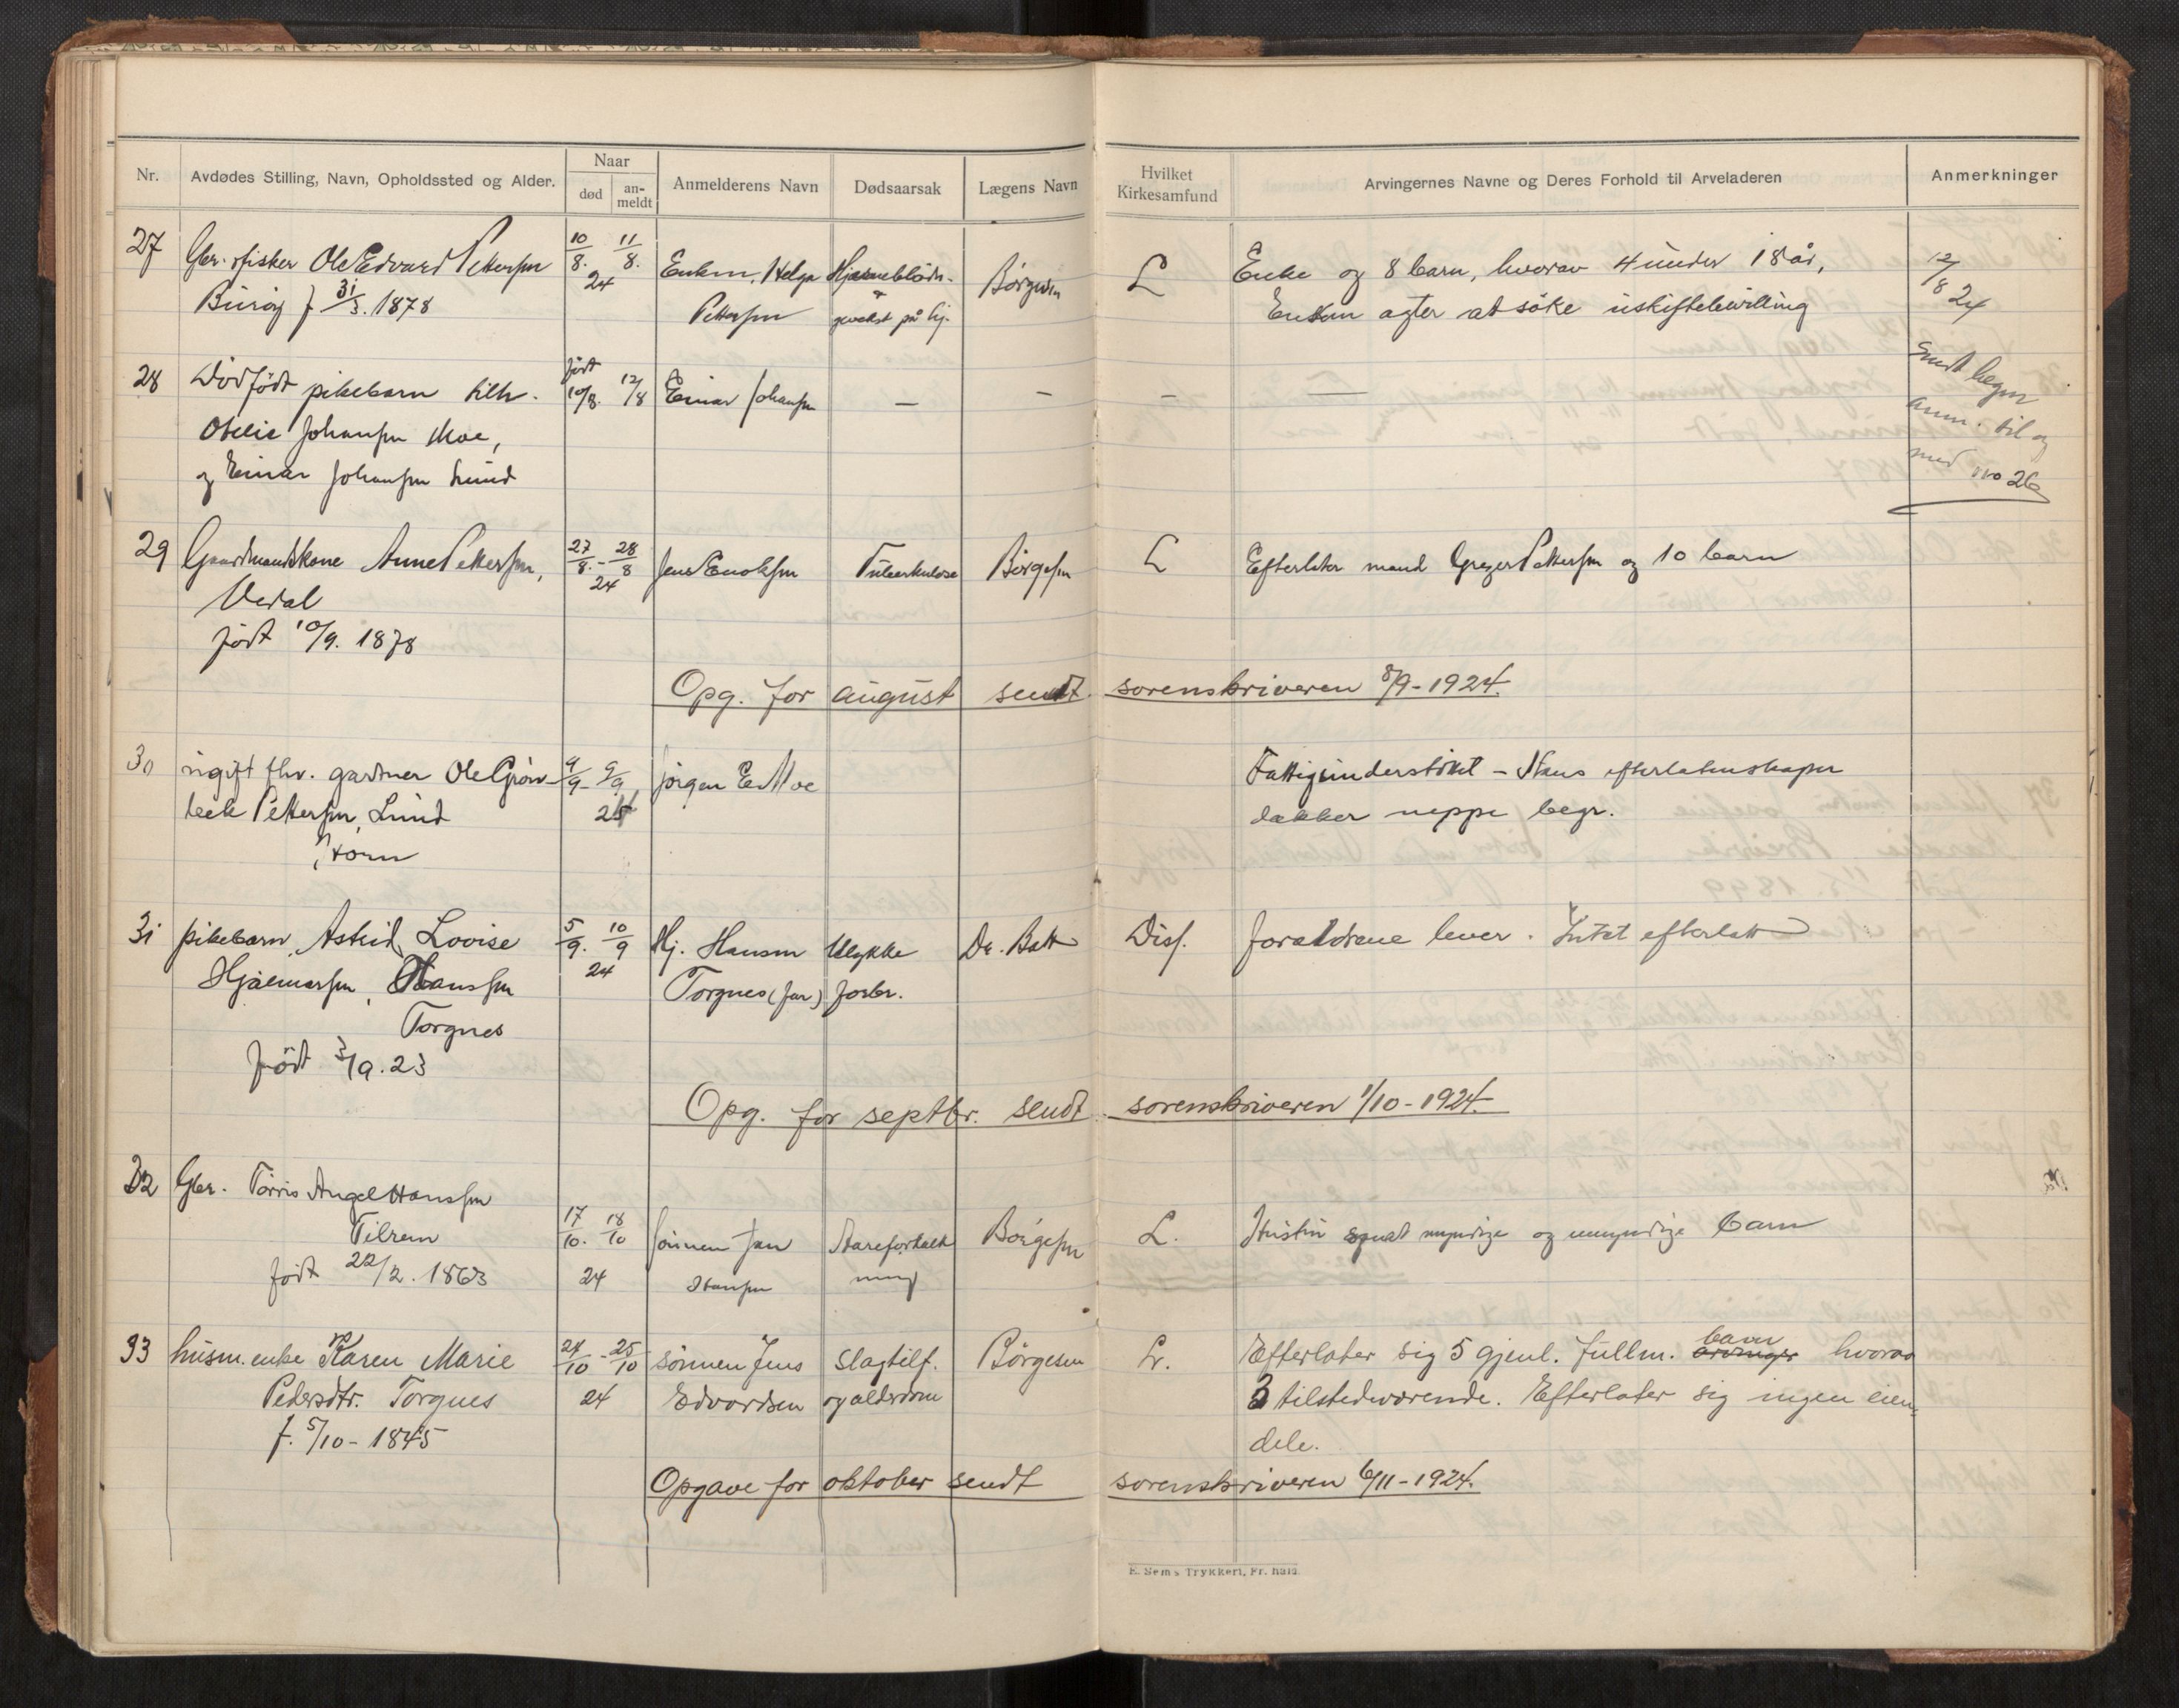 Nr.
Avdødes Stilling, Navn, Opholdssted og Alder.
Naar
død
an-
meldt
Anmelderens Navn
Dødsaarsak
Lægens Navn
Hvilket
Kirkesamfund
Arvingernes Navne og Deres Forhold til Arveladeren
Anmerkninger
27
Gbr. fisker Ole Edvard Pettersen
Burøy f 31/3. 1878
10/8. 11/8.
24
Enken, Helga
Pettersen
Hjerneblødn.
på hj.
Børgesen
L
Enke og 8 barn, hvorav 4 under 18 år,
Enken agter at søke uskiftebevilling
12/8 24
28
Dødfødt pikebarn tilh.
Otelie Johansen Moe,
og Einar Johansen Lund
født
10/8. 12/8
Einar Johansen
—
—
—
—
Sendt begr.
anm. til og
med no 26
29
Gaardmandskone Anne Pettersen,
Vedal
født 10/9. 1878
27/8. - 28/8
24
Jens Enoksen
Tuberkulose
Børgesen
L
Efterlater mand Greger Pettersen og 10 barn
Opg. for august sendt sorenskriveren 8/9-1924.
30
ugift fhv. gartner Ole Grøn-
bek Pettersen, Lund
Horn
4/9 - 9/9
24
Jørgen E. Moe
Fattigunderstøttet - Hans efterlatenskaper
dækker neppe begr.
31
pikebarn, Astrid Lovise
Hjalmarsen, Hanssen
Torgnes
født 3/9.23
5/9. 10/9
24
Hj. Hansen
Torgnes (far)
Ulykke
forbr.
Dr. Batt
Diss.
forældrene lever. Intet efterlatt
Opg. for septbr. sendt sorenskriveren 1/10-1924.
32
Gbr. Torris Angel Hanssen
Tilrem
født 22/2. 1863
17/10. 18/10
24
sønnen Jan
Hansen
Aareforkalk
ning
Børgesen
L.
Hustru samt myndige og umyndige barn
33
husm. enke Karen Marie
Pedersdtr. Torgnes
f. 5/10-1845
24/10 - 25/10
24
sønnen Jens
Edvardsen
slagtilf.
og alderdom
Børgesen
L.
Efterlater sig 5 gjenl. fullm. arvinger barn hvorav
3 tilstedeværende. Efterlater sig ingen eien-
dele.
Opgave for oktober sendt sorenskriveren 6/11-1924.
E. Sem's Trykkeri, Fr. hald.